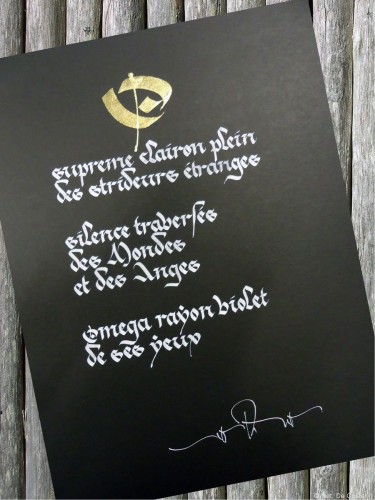 supreme clairon plein
des strideurs étranges
silence traversés
des Mondes
et des Anges
Omega rayon violet
de ses yeux